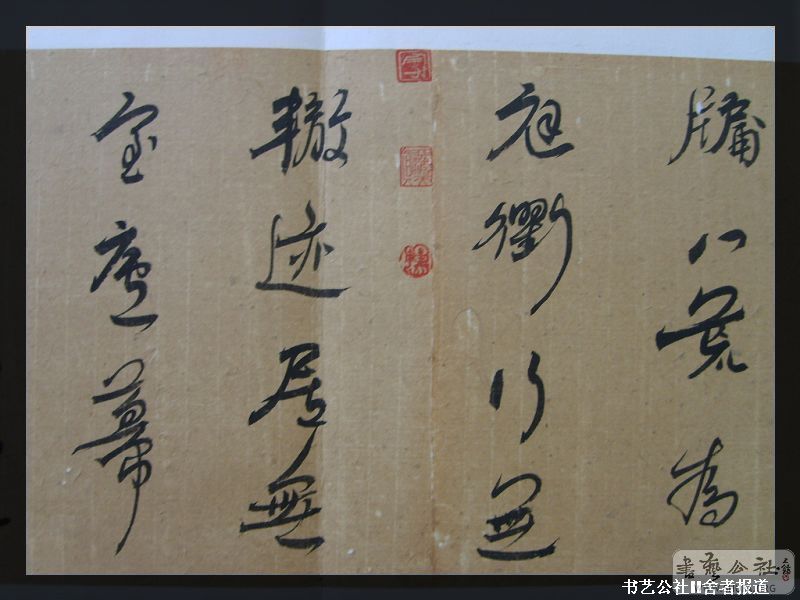 牖八荒為
庭衢行無
轍迹居無
室廬幕
書藝公社
书艺公社II舍者报道